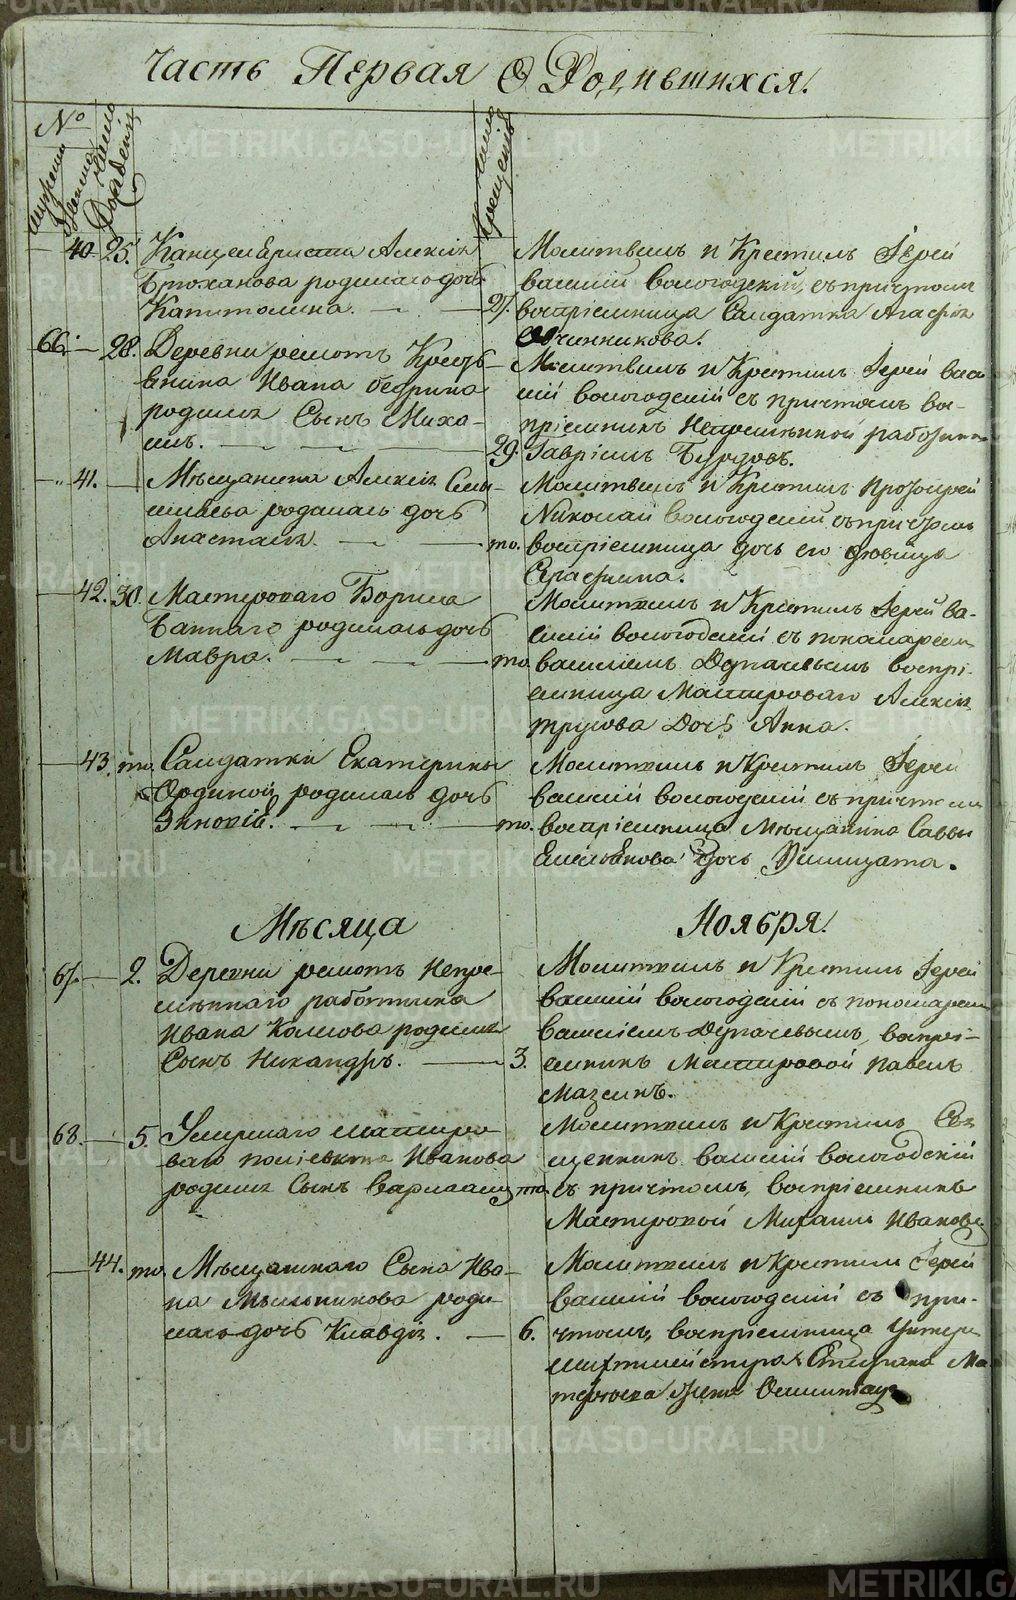 Часть Первая О Родившихся.
№
мужеска
женска
число рождения
число крещения
40. 25. Канцеляриста Алексея
Брюханова родилась дочь
Капитолина. 27.
Молитвилъ и Крестилъ Іерей
василий вологодскій, съ причтомъ
воспріемница Салдатка Агафія
Овчинникова.
66. 28. Деревни решотъ Кресть-
янина Ивана бедрина
родился Сынъ Миха-
илъ. 29.
Молитвилъ и Крестилъ Іерей васи
лій вологодскій съ причтомъ во-
пріемникъ Непременной работник
Гаврiилъ Бурдовъ.
41. Мѣщанина Алексея
родилась дочь
Анастасія. то.
Молитвилъ и Крестилъ протоіерей
Николай вологодскій съ причтомъ
воспріемница дочь его дѣвица
Серафима.
42. 30. Мастероваго Бориса
родилась дочь
Мавра. то.
Молитвилъ и Крестилъ Іерей ва-
силій вологодскій съ пономаремъ
василіемъ Дергачевымъ воспрі-
емница Мастероваго Алексея
трусова Дочь Анна.
43. то. Салдатки Екатерины
родилась дочь
Зиновія. то.
Молитвилъ и Крестилъ Іерей
василій вологодскій съ причтомъ
воспріемница Мѣщанина Саввы
Емельянова дочь Улишата.
Мѣсяца Ноября.
67. 2. Деревни решотъ Непре-
мѣннаго работника
Ивана Колмова родился
Сынъ Никандръ. 3.
Молитвилъ и Крестилъ Іерей
василій вологодскій съ пономаремъ
василіемъ Дергачевымъ, воспрі-
емникъ Мастеровой павелъ
мазеинъ.
68. 5. Умершаго мастеро-
ваго полиевкта Иванова
родился Сынъ варлаамъ то.
Молитвилъ и Крестилъ Свя
щенникъ василій вологодскій
съ причтомъ, воспріемникъ
Мастеровой Михаилъ Ивановъ
44. то. Мѣщанскаго Сына Ива-
на Мыльникова роди-
лась дочь Клавдія. 6.
Молитвилъ и Крестилъ Іерей
василій вологодскій съ при-
чтомъ, воспріемница Унтеръ
шихтмейстера Степана
жена